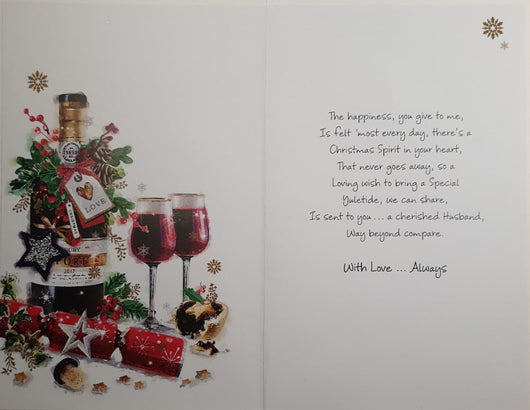 LOVE
2017
The happiness, you give to me,
Is felt 'most every day, there's a
Christmas Spirit in your heart,
That never goes away, so a
Loving wish to bring a Special
Yuletide, we can share,
Is sent to you ... a cherished Husband,
Way beyond compare.
With Love ... Always